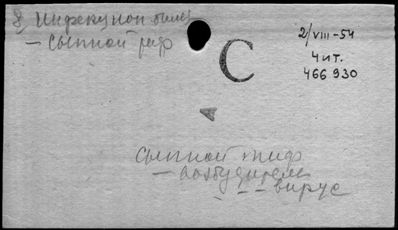 8) Инфекцион. болез.
— сыпной тиф
С
2/VIII-54
Чит.
466 930
сыпной тиф
— возбудитель
— — вирус